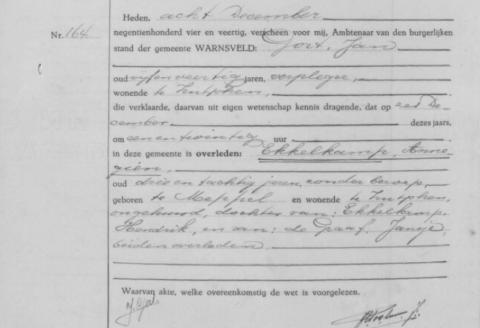 Heden, acht December
Nr. 164
negentienhonderd vier en veertig, verscheen voor mij, Ambtenaar van den burgerlijken
stand der gemeente WARNSVELD: Jan,
oud vijfenveertig jaren, verpleger,
wonende te Zutphen,
die verklaarde, daarvan uit eigen wetenschap kennis dragende, dat op De-
cember dezes jaars,
om eenentwintig uur
in deze gemeente is overleden: Ekkelkamp, Anne-
gien,
oud drieentachtig jaren, zonder beroep,
geboren te Meppel en wonende te Zutphen,
ongehuwd, dochter van: Ekkelkamp,
Hendrik, en van: de Graaf, Jantje,
beiden overleden
Waarvan akte, welke overeenkomstig de wet is voorgelezen.